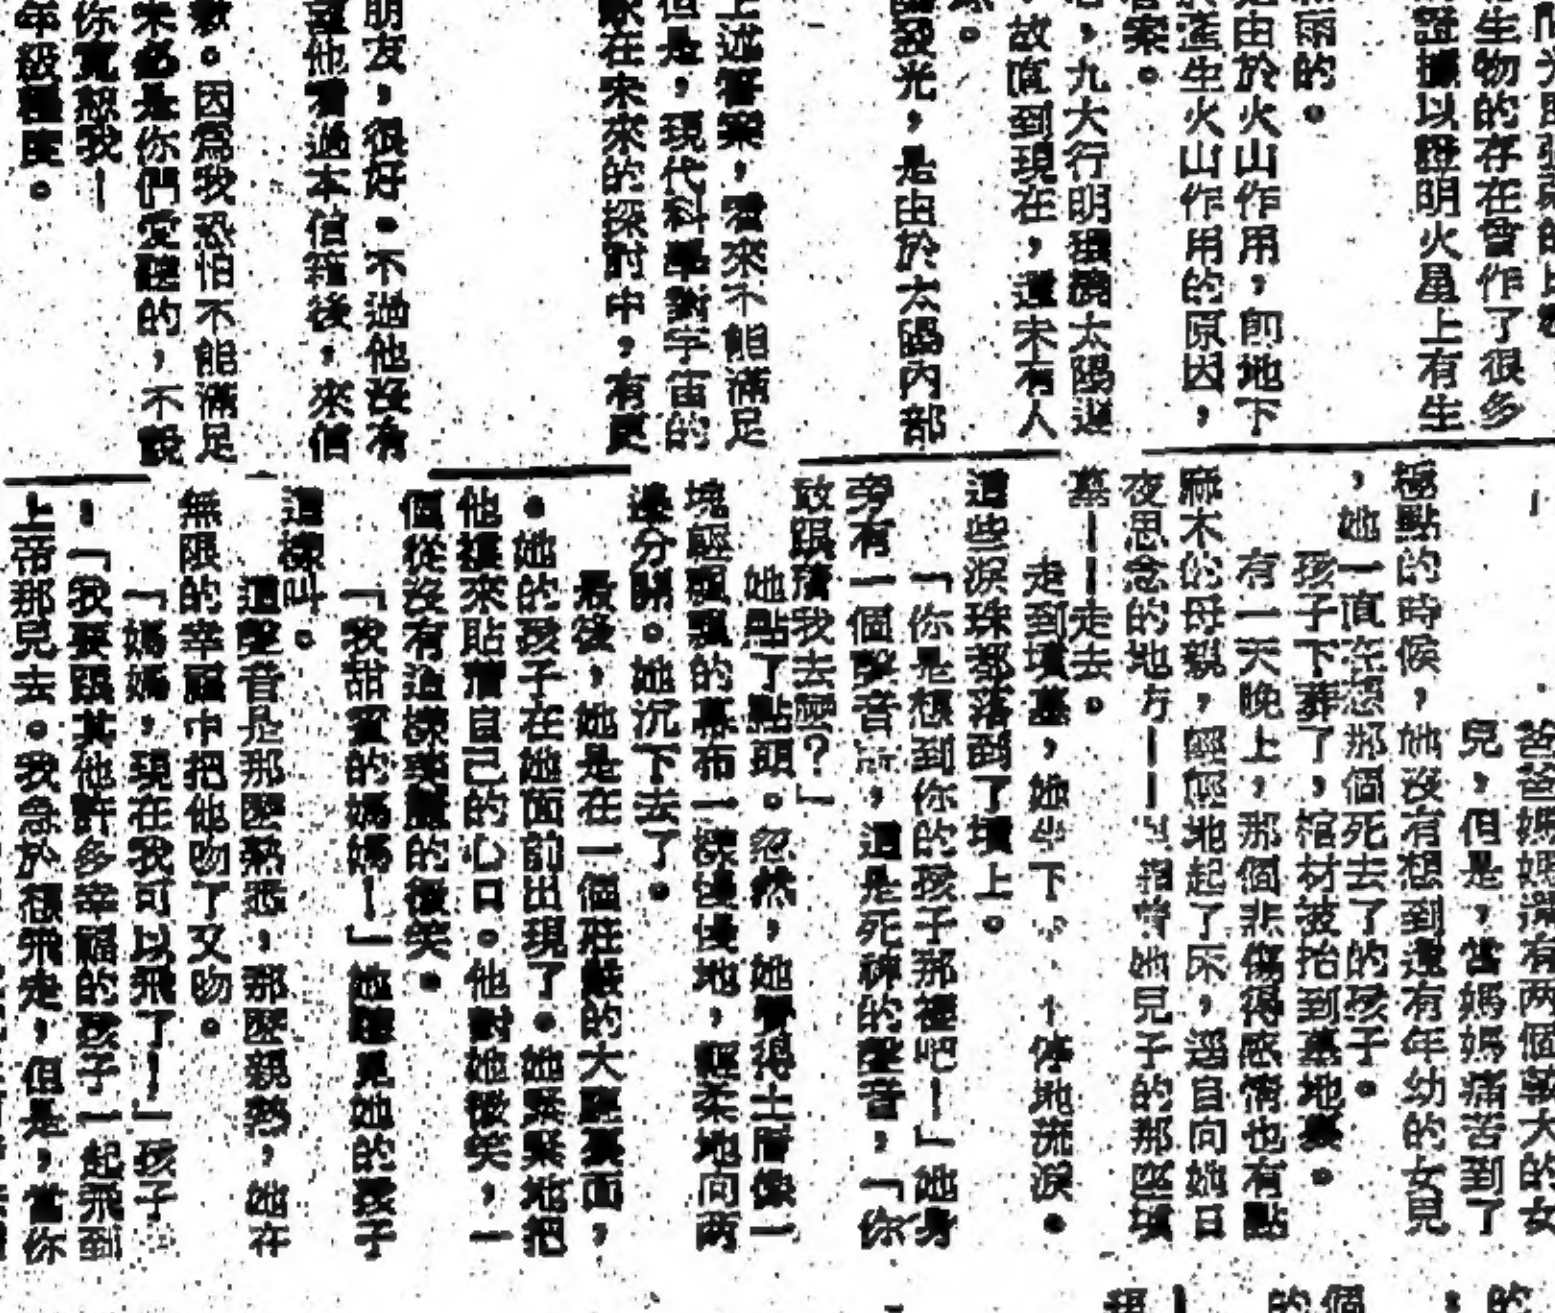 生物的存在曾作了很多
證據以證明火星上有生
雨的。
由於火山作用，卽地下
產生火山作用的原因，
答案。
，九大行明環繞太陽運
，故直到現在，還未有人
發光，是由於太陽內部
上述答案，看來不能滿足
但是，現代科學對宇宙的
在未來的探討中，有更
朋友，很好。不過他沒有
他看過本信箱後，來信
。因為我恐怕不能滿足
未必是你們愛聽的，不說
你寬恕我！
年級程度。
爸爸媽媽還有两個較大的女
兒，但是，當媽媽痛苦到了
極點的時候，她沒有想到還有年幼的女兒
，她一直在想那個死去了的孩子。
孩子下葬了，棺材被抬到墓地裏。
有一天晚上，那個悲傷得感情也有點
麻木的母親，輕輕地起了床，逕自向她日
夜思念的地方——埋着她兒子的那座墳
墓——走去。
走到墳墓，她坐下，不停地流淚。
這些淚珠都落到了墳上。
「你是想到你的孩子那裡吧！」她身
旁有一個聲音說，這是死神的聲音，「你
敢跟着我去嗎？」
她點了點頭。忽然，她覺得土層像一
塊輕飄飄的幕布一樣慢慢地，輕柔地向两
邊分開。她沉下去了。
最後，她是在一個莊嚴的大廳裏面，
。她的孩子在她面前出現了。她緊緊地把
他摟來貼着自己的心口。他對她微笑，一
個從沒有這樣美麗的微笑。
「我甜蜜的媽媽！」她聽見她的孩子
這樣叫。
這聲音是那麼熟悉，那麼親熱，她在
無限的幸福中把他吻了又吻。
「媽媽，現在我可以飛了！」孩子
！「我要跟其他許多幸福的孩子一起飛到
上帝那兒去。我急於想飛走，但是，當你